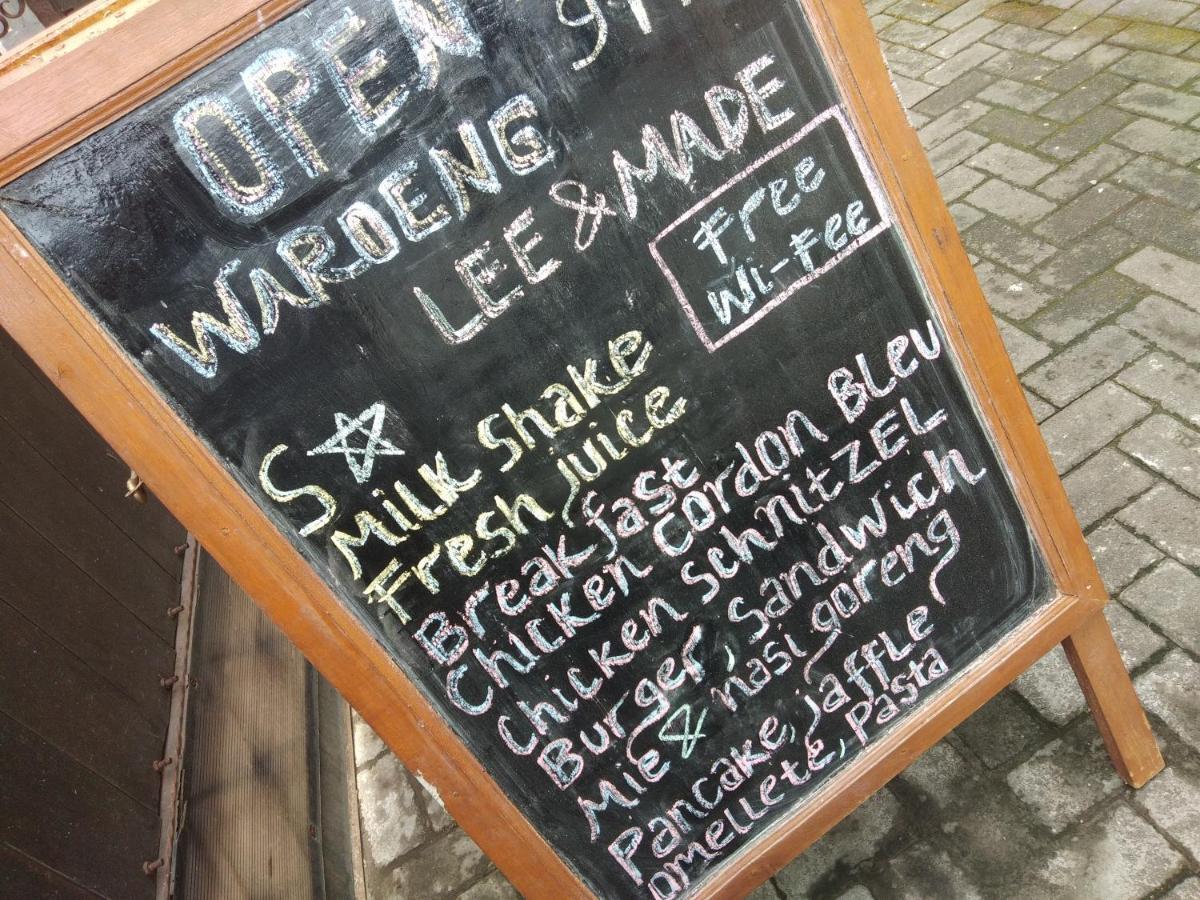 OPEN
WAROENG
LEE & MADE
Free
Wi-Fee
S☆
MiLK Shake
Fresh juice
Breakfast
Chicken Cordon BLeu
Chicken SchnitZEL
Burger, Sandwich
Mie & nasi goreng
Pancake, jaffle
omellete, pasta